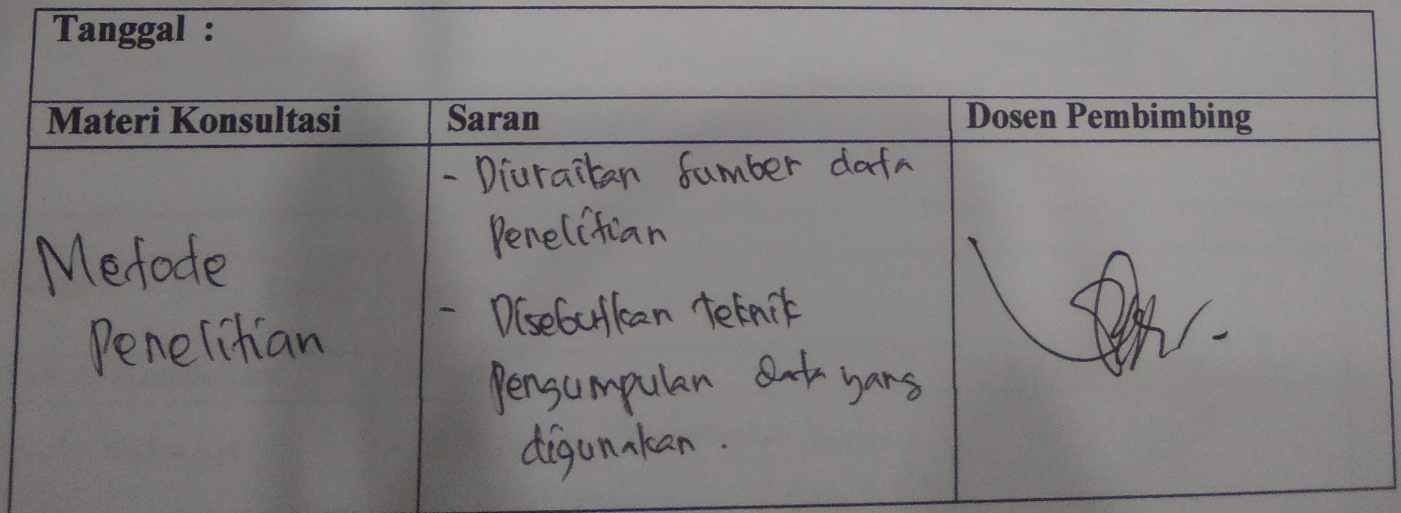 Tanggal :
Materi Konsultasi
Saran
Dosen Pembimbing
Metode
Penelitian
- Diuraikan sumber data
Penelitian
- Disebutkan teknik
Pengumpulan data yang
digunakan .